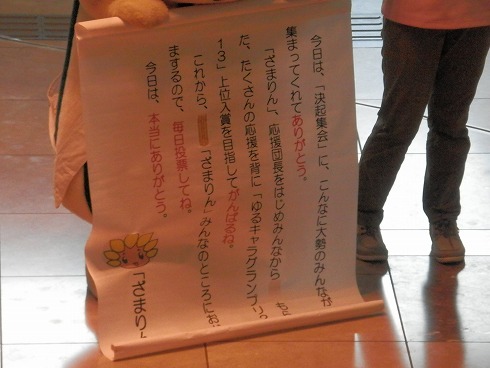 今日は、「決起集会」に、こんなに大勢のみんなが
集まってくれてありがとう。
「ざまりん」、応援団長をはじめみんなから
た、たくさんの応援を背に「ゆるキャラグランプリ
13」上位入賞を目指してがんばるね。
これから、「ざまりん」みんなのところにお
ますので、毎日投票してね。
今日は、本当にありがとう。
「ざまりん